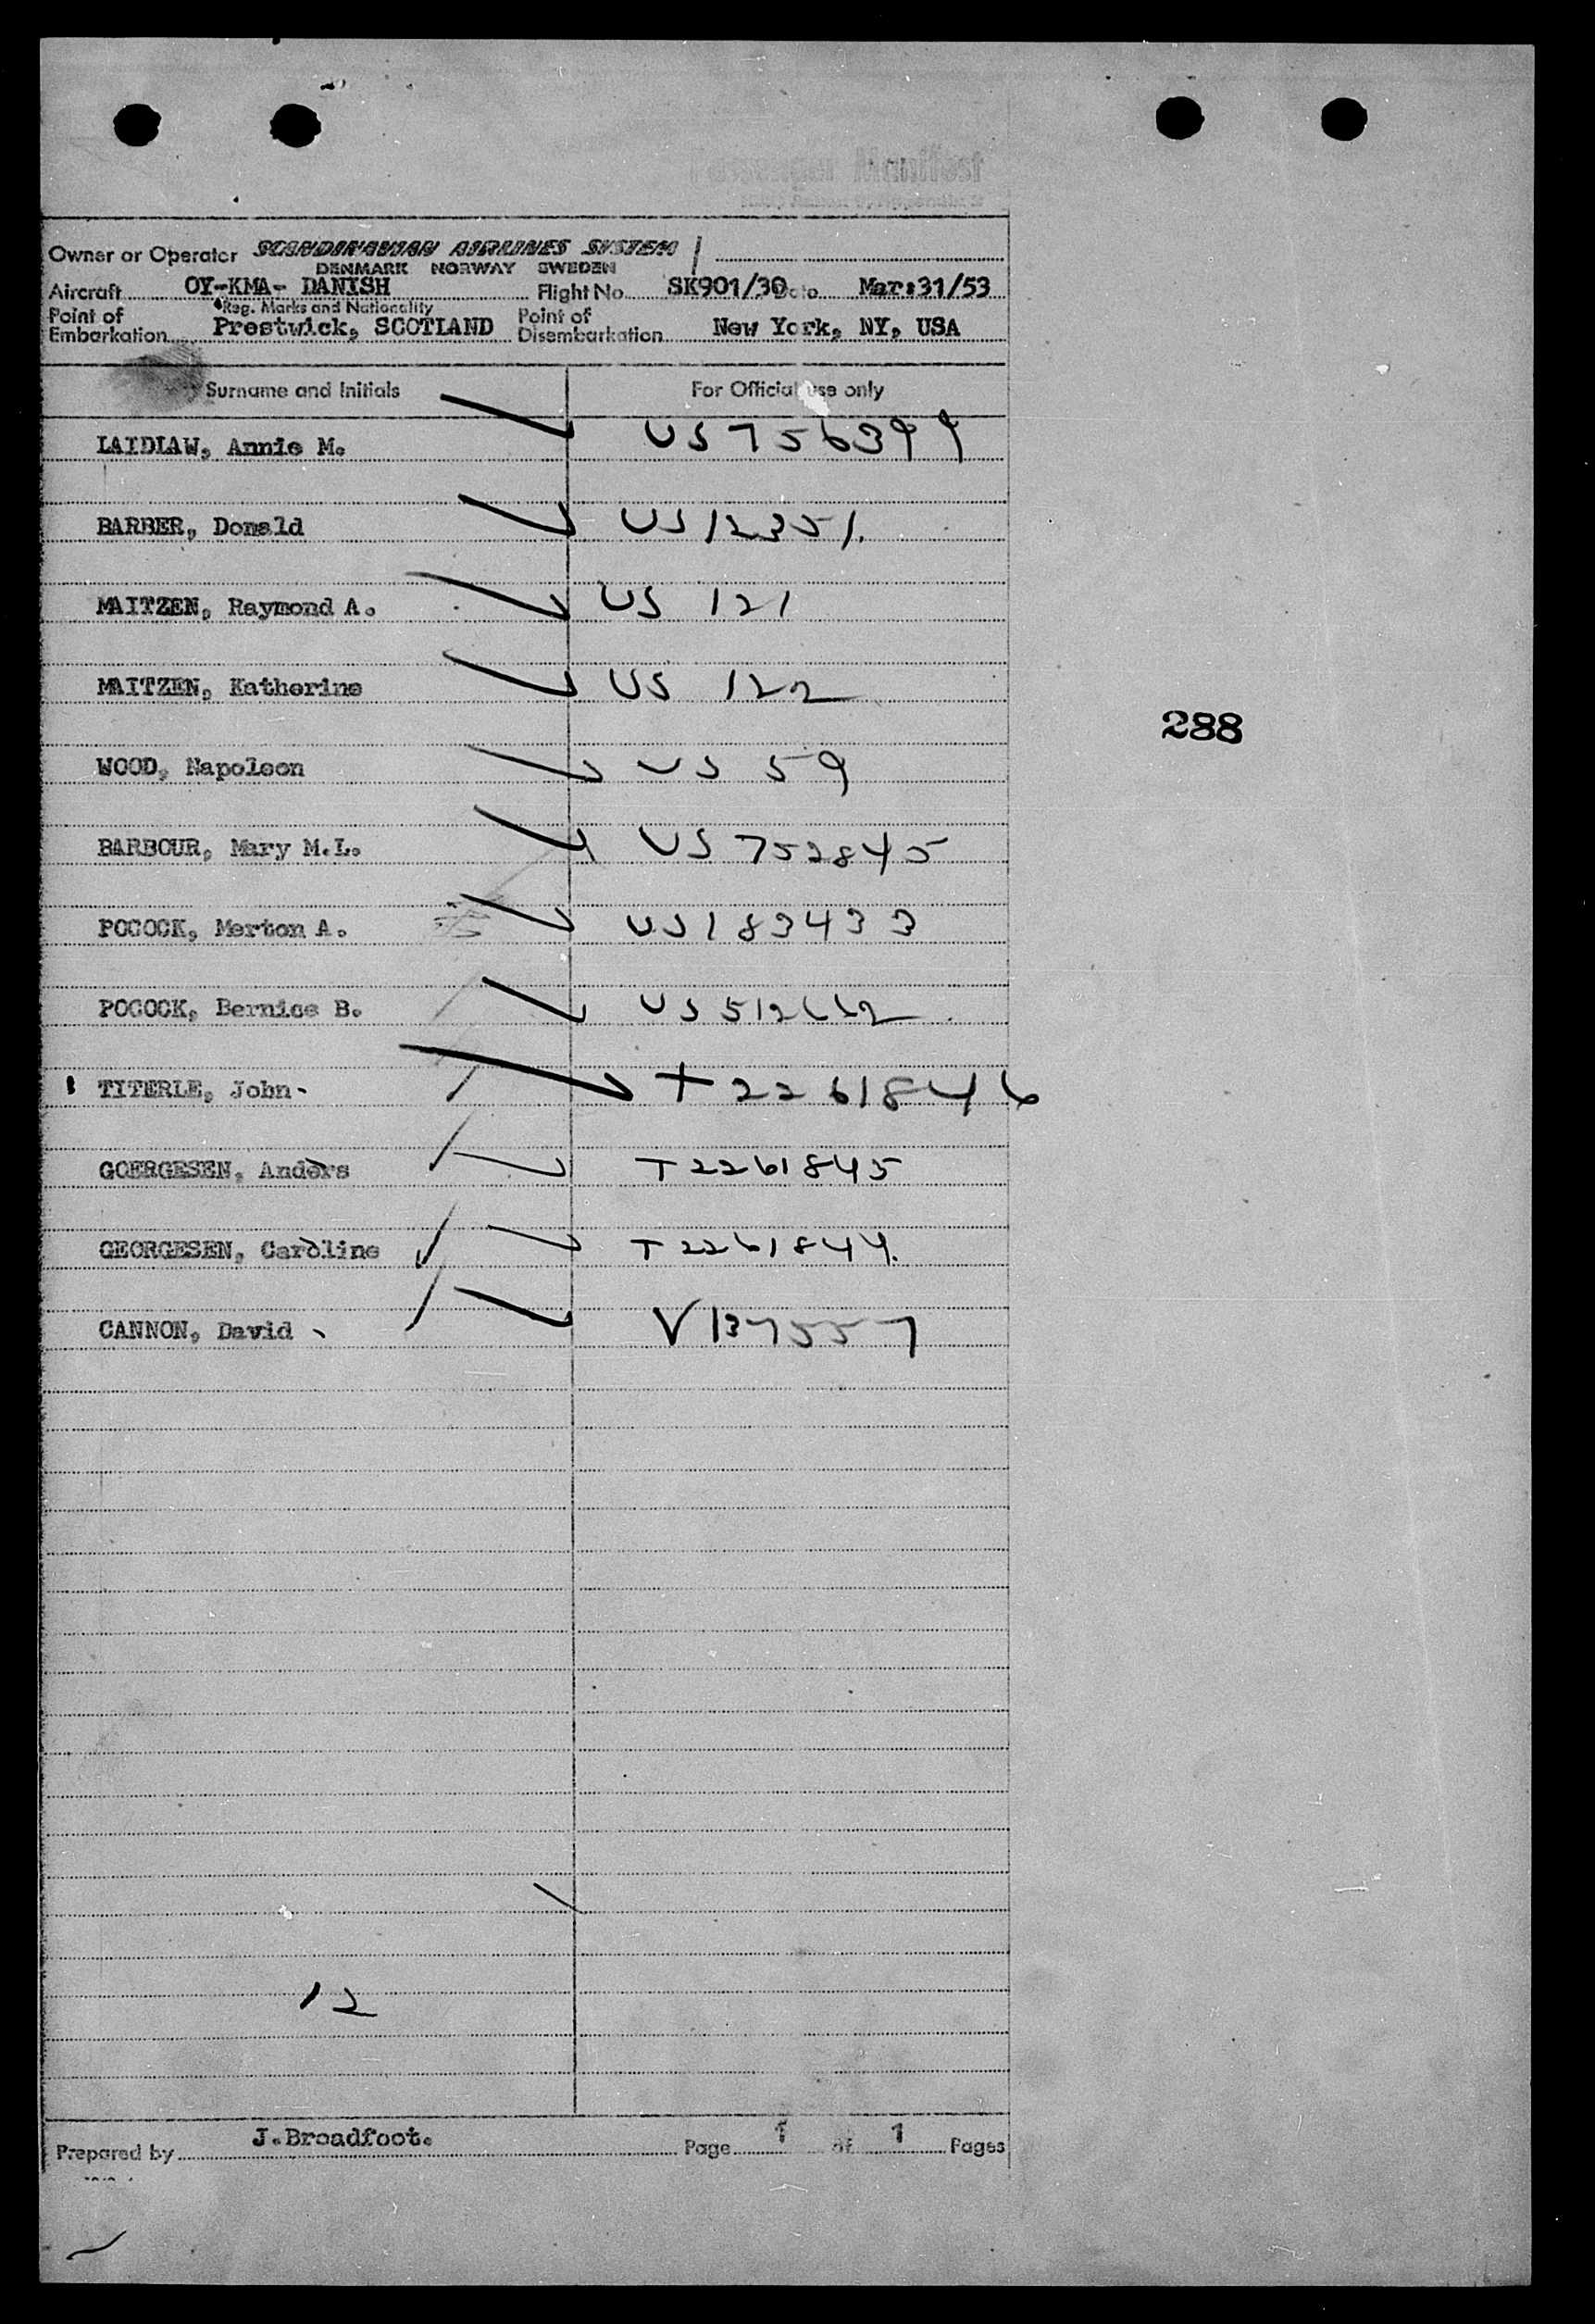 Passenger Manifest
Owner or Operator SCANDINAVIAN AIRLINES SYSTEM
DENMARK NORWAY SWEDEN
Aircraft OY-KMA- DANISH Flight No. SK901/30 Date Mar:31/53
*Reg. Marks and Nationality
Point of Embarkation Prestwick, SCOTLAND Point of Disembarkation New York, NY, USA
Surname and Initials For Official use only
LAIDLAW, Annie M. US 756399
BARBER, Donald US 12351.
MAITZEN, Raymond A. US 121
MAITZEN, Katherine US 122
288
WOOD, Napoleon US 59
BARBOUR, Mary M.L. US 752845
POCOCK, Merton A. US 183433
POCOCK, Bernice B. US 512662
TITERLE, John T 2261846
GOERGESEN, Anders T 2261845
GEORGESEN, Caroline T 2261844.
CANNON, David V 137557
12
Prepared by J.Broadfoot. Page 1 of 1 Pages